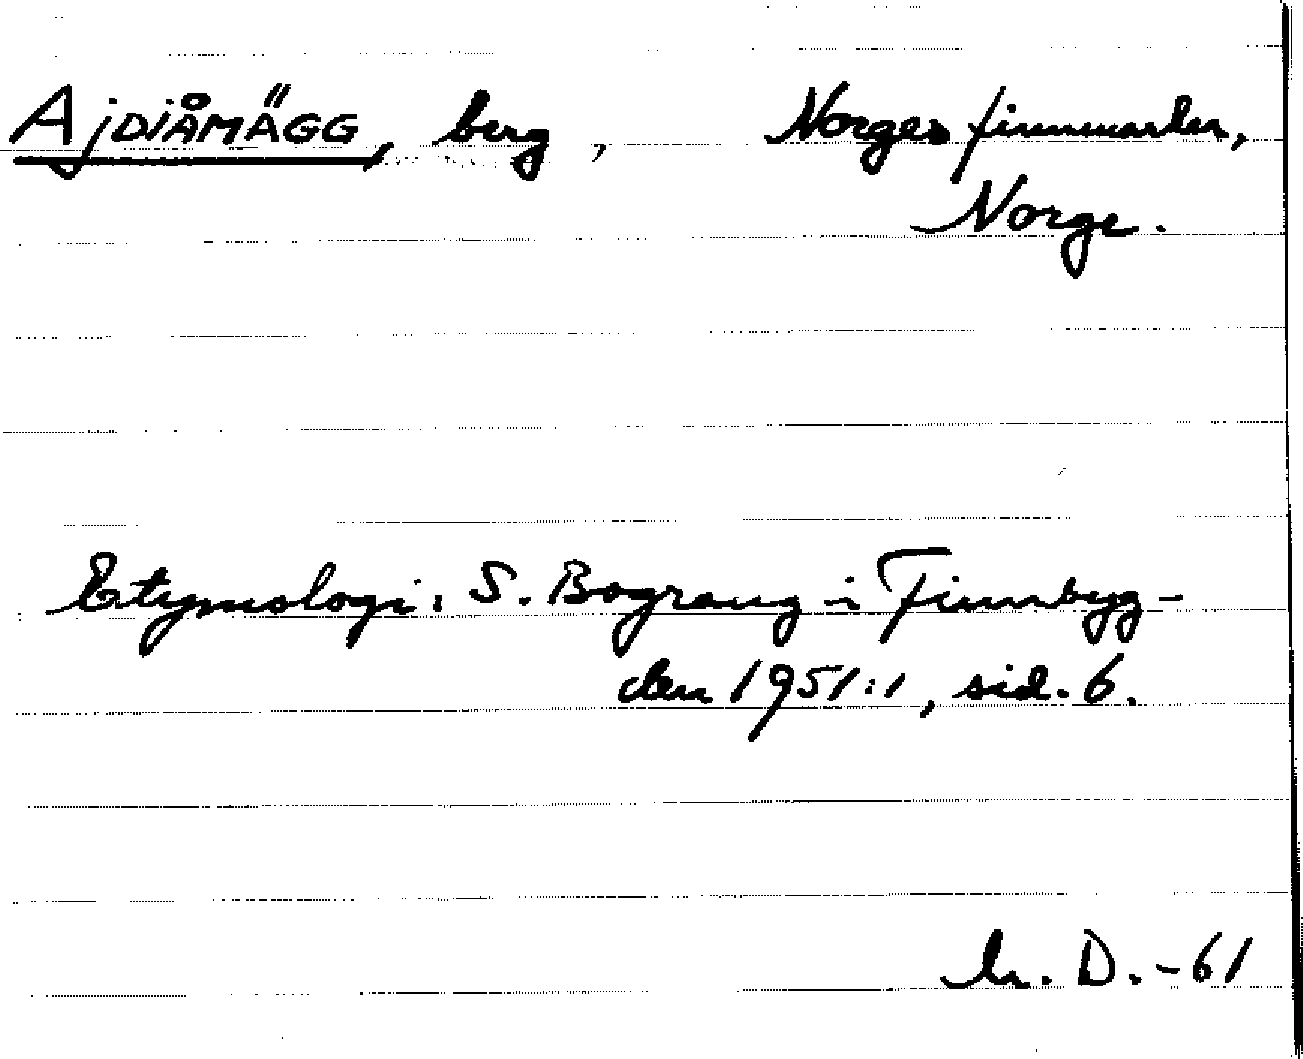 AJDJÅMÄGG, berg, Norges finnmarker,
Norge.
Etymologi: S. Bograng i Finnbyg-
den 1951:1, sid. 6.
D. -61